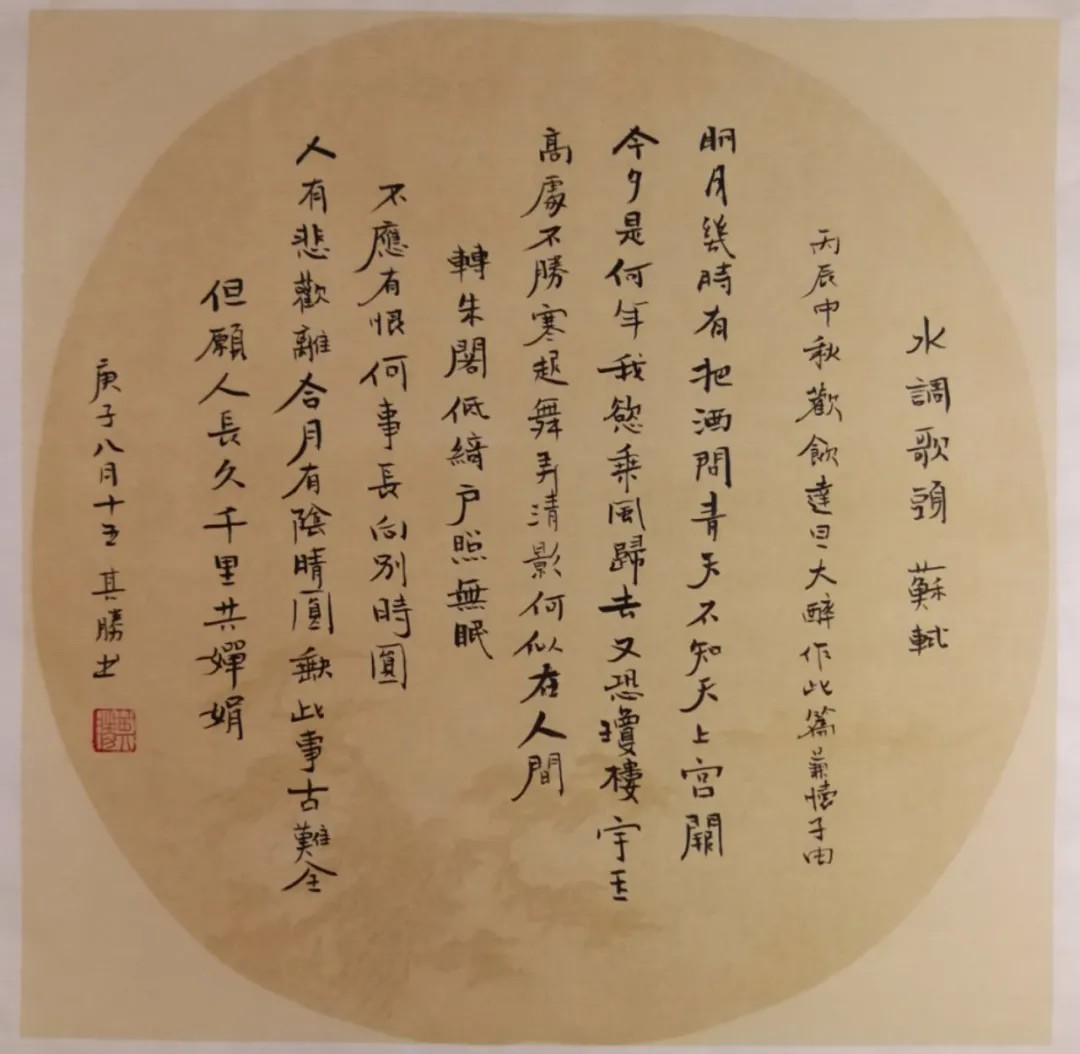 水調歌頭 蘇軾
丙辰中秋歡飲達旦大醉作此篇兼懷子由
明月幾時有把酒問青天不知天上宮闕
今夕是何年我慾乘風歸去又恐瓊樓宇玉
高處不勝寒起舞弄清影何似在人間
轉朱閣低綺户照無眠
不應有恨何事長向別時圓
人有悲歡離合月有陰晴圓缺此事古難全
但願人長久千里共嬋娟
庚子八月十五 其勝书